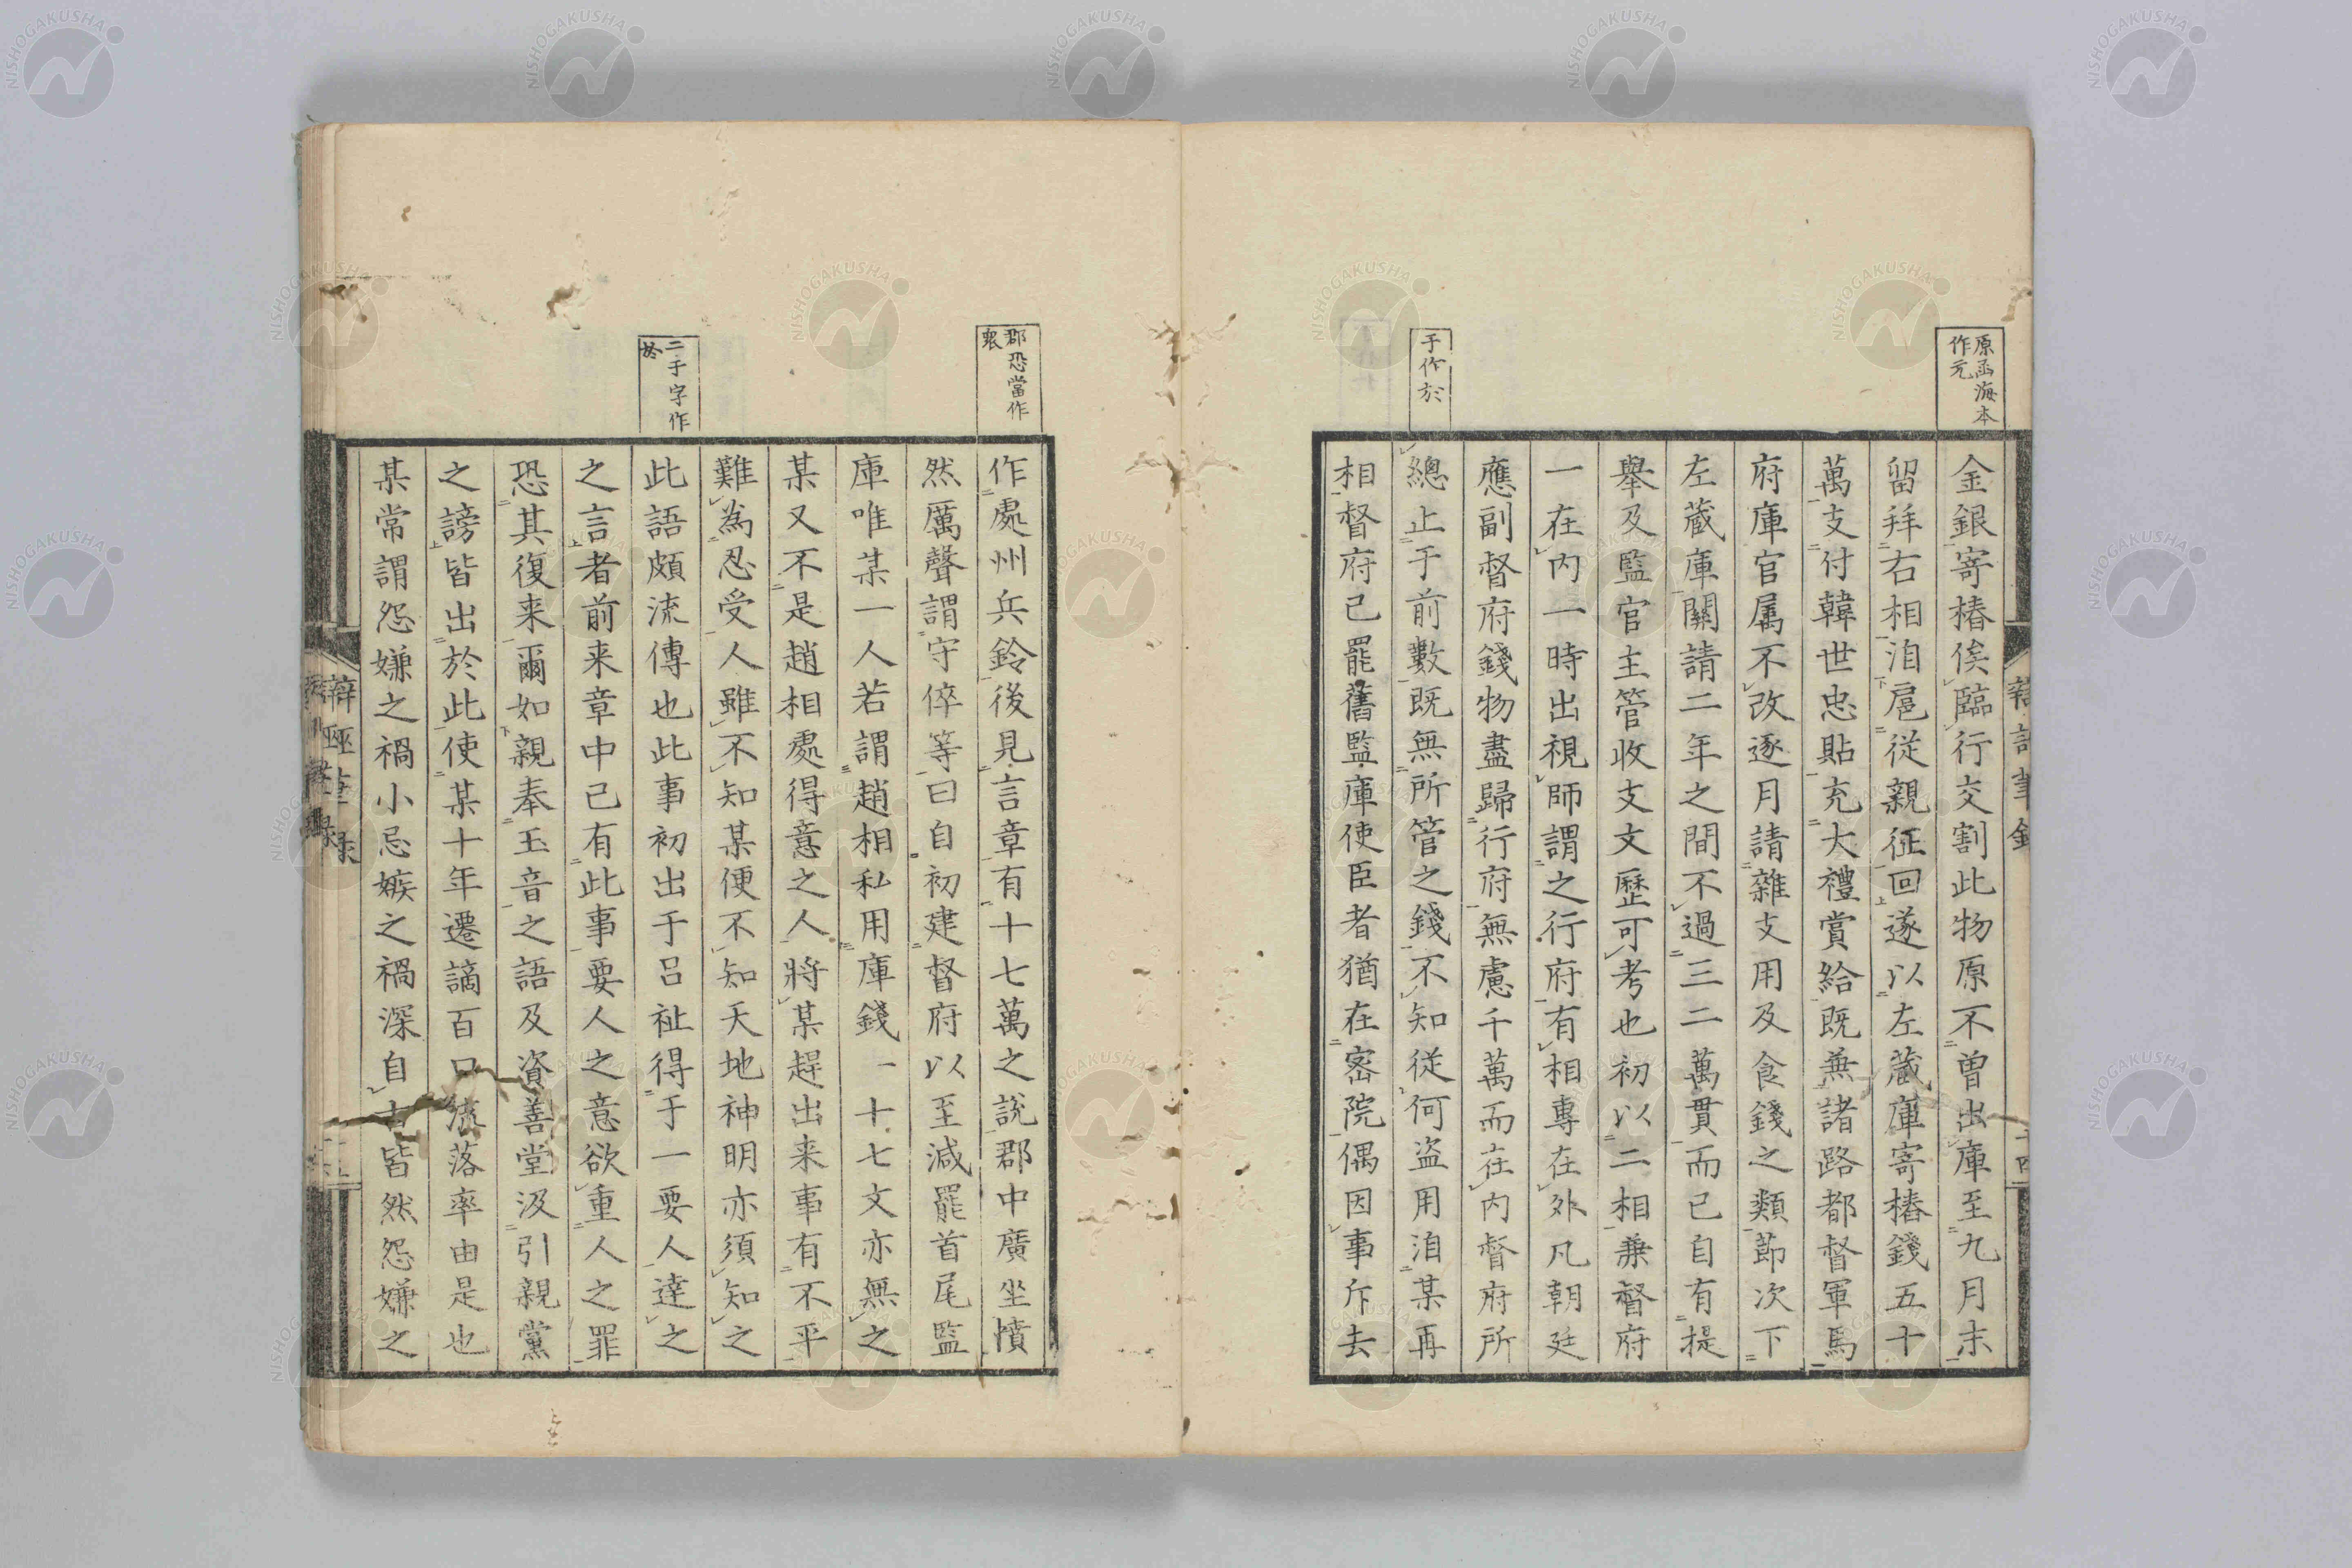 原函海本
作元
金銀寄樁俟臨行交割此物原不曾出庫至九月末
留拜右相洎扈從親征回遂以左藏庫寄樁錢五十
萬支付韓世忠貼充大禮賞給既無諸路都督軍馬
府庫官属不改逐月請雜支用及食錢之類節次下
左藏庫關請二年之間不過三二萬貫而已自有提
舉及監官主管收支文歷可考也初以二相兼督府
一在內一時出視師謂之行府有相專在外凡朝廷
應副督府錢物盡歸行府無慮千萬而在內督府所
于作於
總止于前數既無所管之錢不知從何盜用洎某再
相督府已罷舊監庫使臣者猶在密院偶因事斥去
郡恐當作
衆
作處州兵鈐後見言章有十七萬之説郡中廣坐憤
然厲聲謂守倅等曰自初建督府以至減罷首尾監
庫唯某一人若謂趙相私用庫錢一十七文亦無之
某又不是趙相處得意之人將某趕出来事有不平
難為忍受人雖不知某便不知天地神明亦須知之
二于字作
於
此語頗流傳也此事初出于呂祉得于一要人達之
之言者前来章中已有此事要人之意欲重人之罪
恐其復来爾如親奉玉音之語及資善堂汲引親黨
之謗皆出於此使某十年遷謫百口流落率由是也
某常謂怨嫌之禍小忌嫉之禍深自古皆然怨嫌之
NISHOGAKUSHA